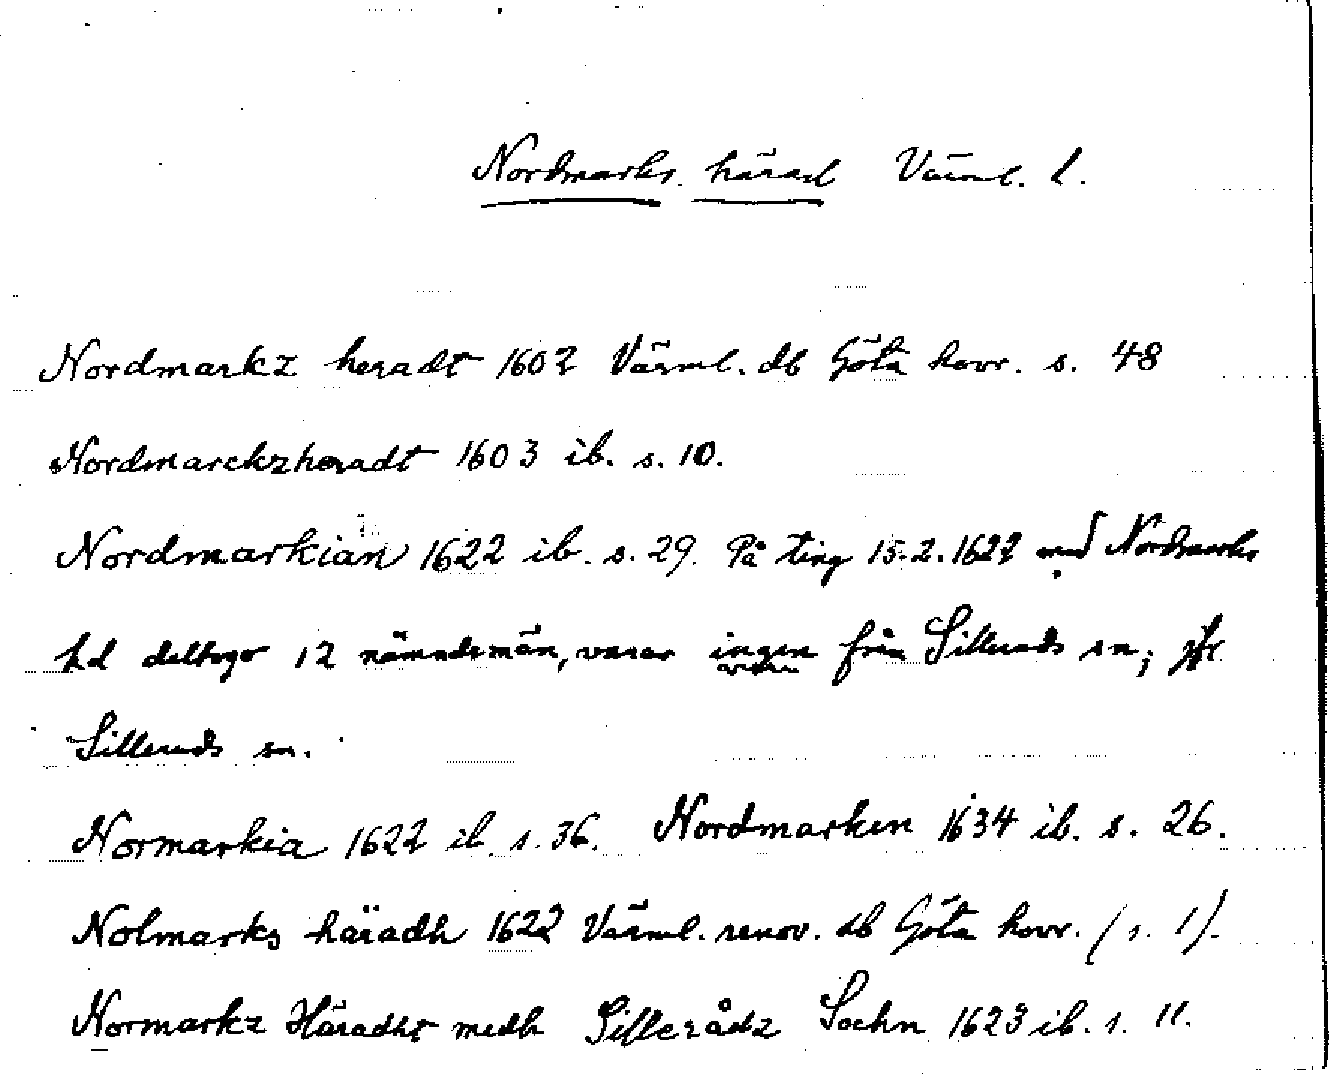 Nordmarks härad Värml. l.
Nordmarkz heradt 1602 Värml. db Göta hovr. s. 48
Nordmarckzheradt 1603 ib. s. 10.
Nordmarkian 1622 ib. s. 29. På ting 15.2.1622 med Nordmarks
hd deltogo 12 nämndemän, varav ingen från Silleruds sn; jfr
Silleruds sn.
Normarkia 1622 ib. s. 36. Nordmarken 1634 ib. s. 26.
Nolmarks häradh 1622 Värml. renov. db Göta hovr. (s. 1).
Normarkz Häradht medh Sillerådz Sochn 1623 ib. s. 11.